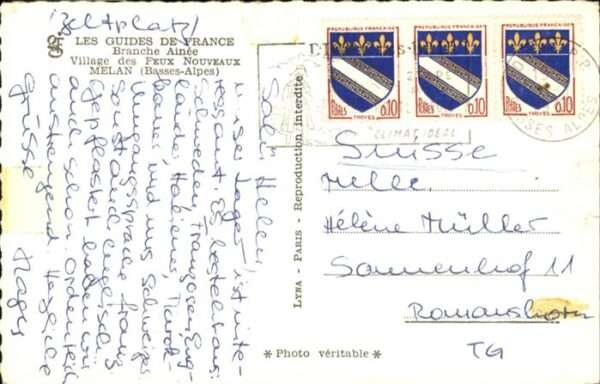 Zeltplatz!
LES GUIDES DE FRANCE
Branche Aînée
Village des FEUX NOUVEAUX
MELAN (Basses-Alpes)
Salü Helen,
unser Lager ist inte-
ressant. Es besteht aus
Schweden, Franzosen, Eng-
länder, Italiener,
und uns Schweizer.
Umgangssprache franz.
und englisch.
Gepflastert haben wir
auch schon ordentlich
anstrengend. Herzliche
Grüsse
LYNA - PARIS - Reproduction Interdite
* Photo véritable *
REPUBLIQUE FRANÇAISE
POSTES
0,10
TROYES
REPUBLIQUE FRANÇAISE
POSTES
0,10
TROYES
REPUBLIQUE FRANÇAISE
POSTES
0,10
TROYES
CLIMAT IDEAL
SES ALPES
Suisse
Mlle.
Hélène Müller
Sonnenhof 11
Romanshorn
TG